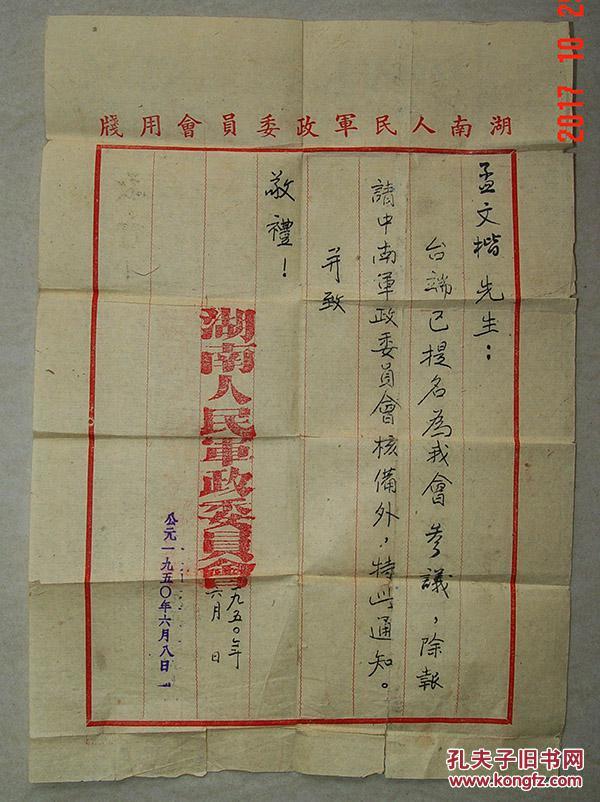 湖南人民軍政委員會用牋
孟文楷先生：
台端已提名為我會参議，除報
請中南軍政委員會核備外，特此通知。
并致
敬禮！
湖南人民軍政委員會
一九五〇年
六月 日
公元一九五〇年六月八日
2017 10 2
孔夫子旧书网
www.kongfz.com